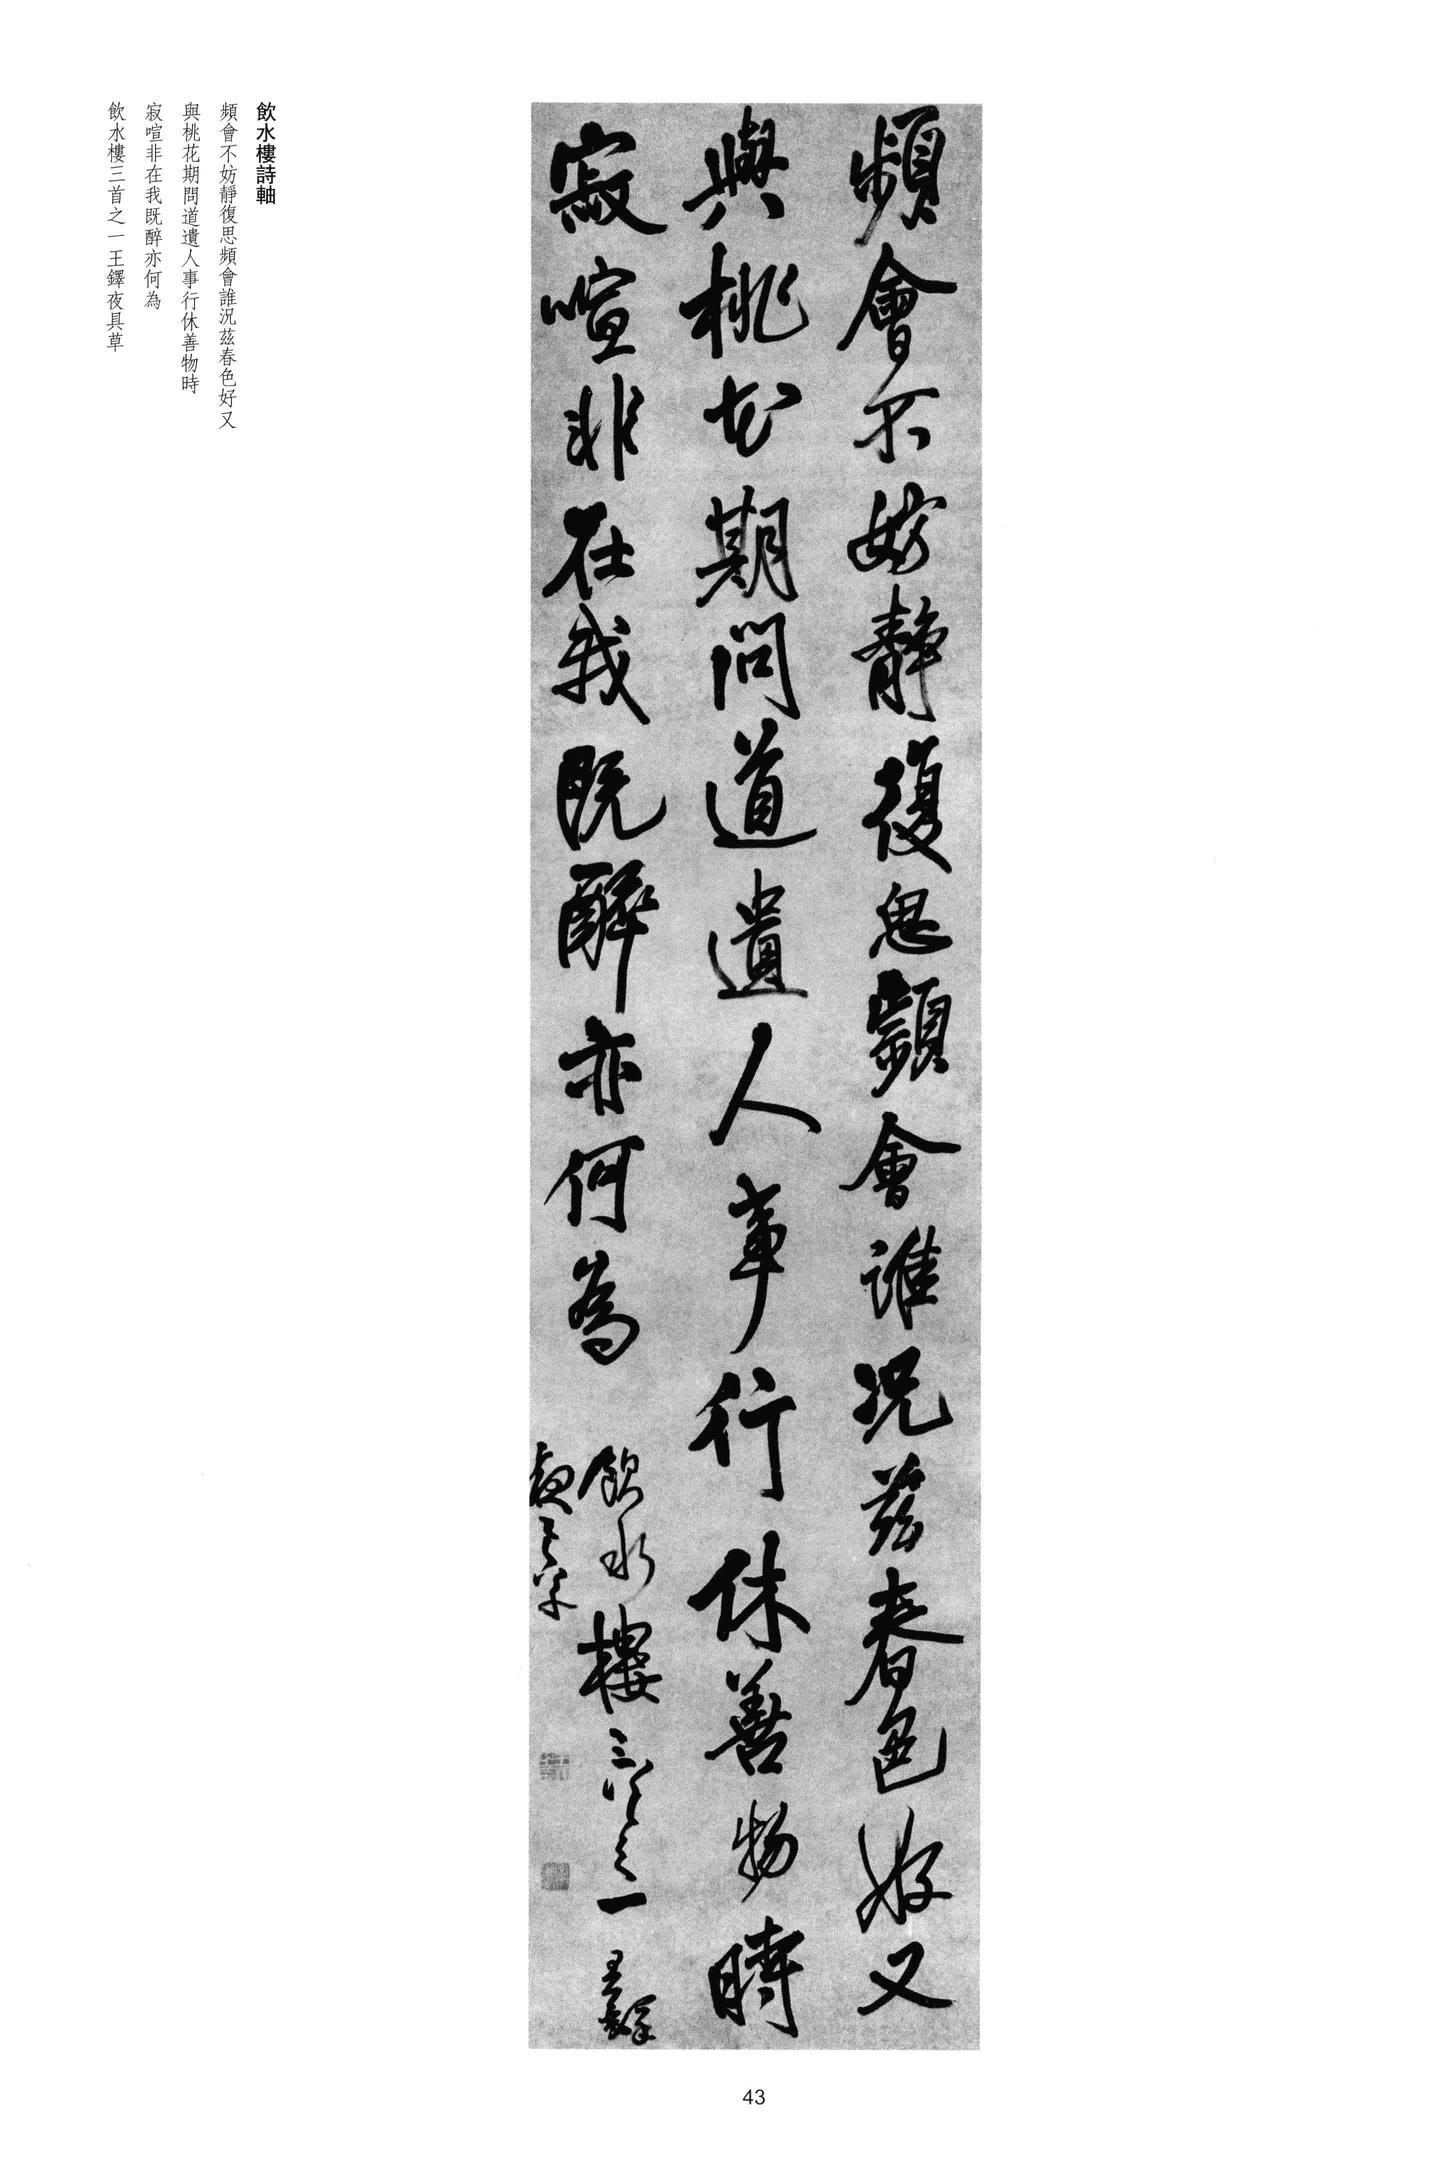 飲水樓詩軸
頻會不妨靜復思頻會誰況茲春色好又
與桃花期問道遺人事行休善物時
寂喧非在我既醉亦何為
飲水樓三首之一王鐸夜具草
頻會不妨靜復思頻會誰况茲春色好又
與桃花期問道遺人事行休善物時
寂喧非在我既醉亦何為
飲水樓三首之一王鐸
夜具草
43